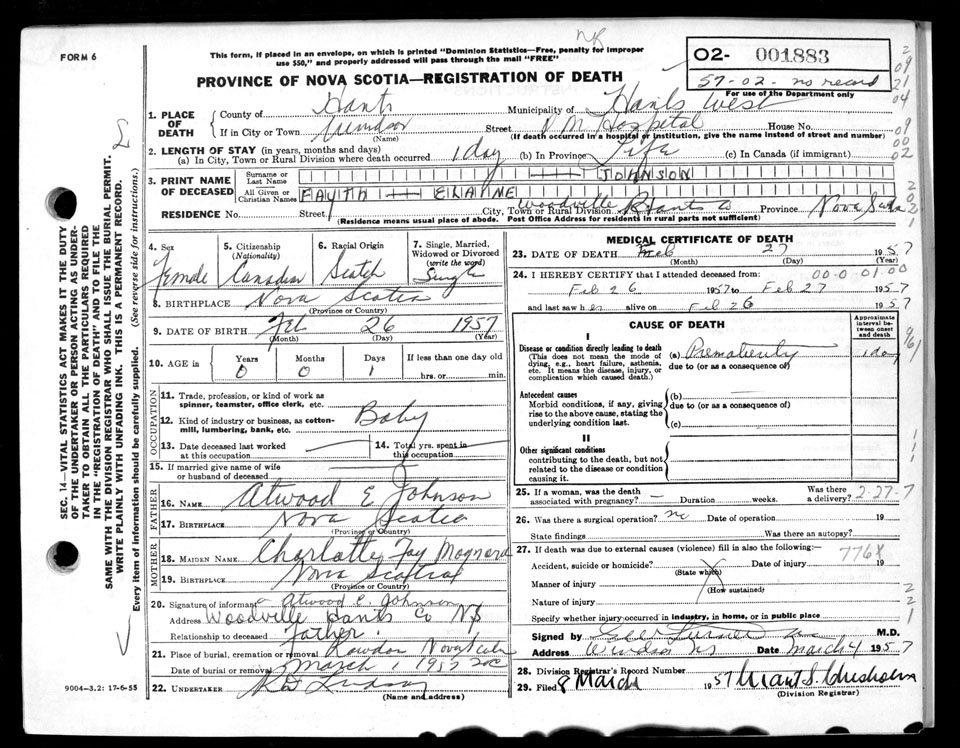 FORM 6
This form, if placed in an envelope, on which is printed "Dominion Statistics—Free, penalty for improper
use $50," and properly addressed will pass through the mail "FREE"
NR
O2- 001883
57-02- no record
For use of the Department only
PROVINCE OF NOVA SCOTIA—REGISTRATION OF DEATH
1. PLACE OF DEATH
County of Hants
Municipality of Hants West
If in City or Town Windsor
(Name)
Street P M Hospital House No.
(If death occurred in a hospital or institution, give the name instead of street and number)
2. LENGTH OF STAY (in years, months and days)
(a) In City, Town or Rural Division where death occurred 1 day (b) In Province Life (c) In Canada (if immigrant)
3. PRINT NAME OF DECEASED
Surname or Last Name JOHNSON
All Given or Christian Names FAYTH ELAINE
RESIDENCE No. Street City, Town or Rural Division Woodville Hants Co Province Nova Scotia
(Residence means usual place of abode. Post Office Address for residents in rural parts not sufficient)
4. Sex Female
5. Citizenship (Nationality) Canadian
6. Racial Origin Scotch
7. Single, Married, Widowed or Divorced (write the word) Single
8. BIRTHPLACE Nova Scotia
(Province or Country)
9. DATE OF BIRTH Feb 26 1957
(Month) (Day) (Year)
10. AGE in Years Months Days If less than one day old
0 0 1 hrs. or min.
OCCUPATION
11. Trade, profession, or kind of work as
spinner, teamster, office clerk, etc.
12. Kind of industry or business, as cotton-
mill, lumbering, bank, etc. Baby
13. Date deceased last worked
at this occupation
14. Total yrs. spent in
this occupation
15. If married give name of wife
or husband of deceased
FATHER
16. NAME Atwood E Johnson
17. BIRTHPLACE Nova Scotia
(Province or Country)
MOTHER
18. MAIDEN NAME Charlotte Fay Maynard
19. BIRTHPLACE Nova Scotia
(Province or Country)
20. Signature of informant Atwood E. Johnson
Address Woodville Hants Co NS
Relationship to deceased Father
21. Place of burial, cremation or removal Rawdon Nova Scotia
Date of burial or removal March 1 1957
22. UNDERTAKER Lindsay
(Name and address)
9004—3.2: 17-6-55
MEDICAL CERTIFICATE OF DEATH
23. DATE OF DEATH Feb 27 1957
(Month) (Day)
24. I HEREBY CERTIFY that I attended deceased from: 00-0-01.00
Feb 26 1957 to Feb 27 1957
and last saw her alive on Feb 26 1957
CAUSE OF DEATH
Approximate interval between onset and death
I
Disease or condition directly leading to death
(This does not mean the mode of
dying, e.g., heart failure, asthenia,
etc. It means the disease, injury, or
complication which caused death.)
(a) Prematurity 1 day
due to (or as a consequence of)
Antecedent causes
Morbid conditions, if any, giving
rise to the above cause, stating the
underlying condition last.
(b)
due to (or as a consequence of)
(c)
II
Other significant conditions
contributing to the death, but not
related to the disease or condition
causing it.
25. If a woman, was the death
associated with pregnancy? Duration weeks. Was there a delivery? 2-27-7
26. Was there a surgical operation? no Date of operation 19
State findings Was there an autopsy?
27. If death was due to external causes (violence) fill in also the following:—
776X
Accident, suicide or homicide? Date of injury 19
(State which)
Manner of injury
(How sustained)
Nature of injury
Specify whether injury occurred in industry, in home, or in public place
Signed by M.D.
Address Windsor NS Date March 4 1957
28. Division Registrar's Record Number
29. Filed 8 March 1957 Grant S. Chisholm
(Division Registrar)
SEC. 14—VITAL STATISTICS ACT MAKES IT THE DUTY
OF THE UNDERTAKER OR PERSON ACTING AS UNDER-
TAKER TO OBTAIN ALL THE PARTICULARS REQUIRED
IN THE "REGISTRATION OF DEATH" AND TO FILE THE
SAME WITH THE DIVISION REGISTRAR WHO SHALL ISSUE THE BURIAL PERMIT.
WRITE PLAINLY WITH UNFADING INK. THIS IS A PERMANENT RECORD.
Every item of information should be carefully supplied. (See reverse side for instructions.)